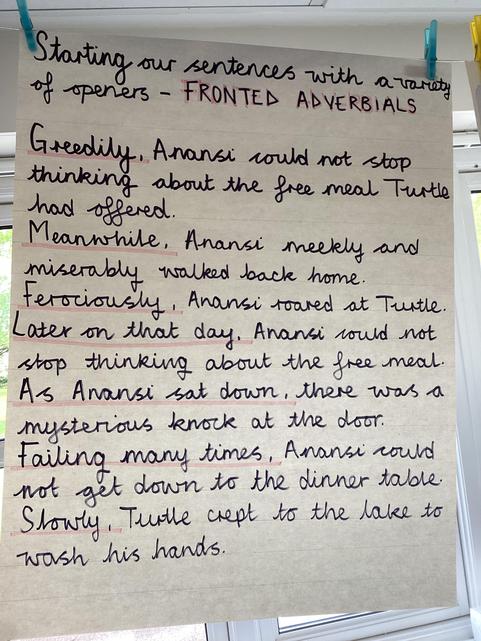 Starting our sentences with a variety
of openers - FRONTED ADVERBIALS
Greedily, Anansi could not stop
thinking about the free meal Turtle
had offered.
Meanwhile, Anansi meekly and
miserably walked back home.
Ferociously, Anansi roared at Turtle.
Later on that day, Anansi could not
stop thinking about the free meal.
As Anansi sat down, there was a
mysterious knock at the door.
Failing many times, Anansi could
not get down to the dinner table.
Slowly, Turtle crept to the lake to
wash his hands.